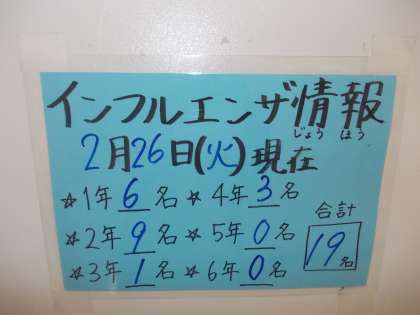 インフルエンザ情報
じょう ほう
2月26日(火)現在
☆1年6名 ☆4年3名
☆2年9名 ☆5年0名
☆3年1名 ☆6年0名
合計
19名